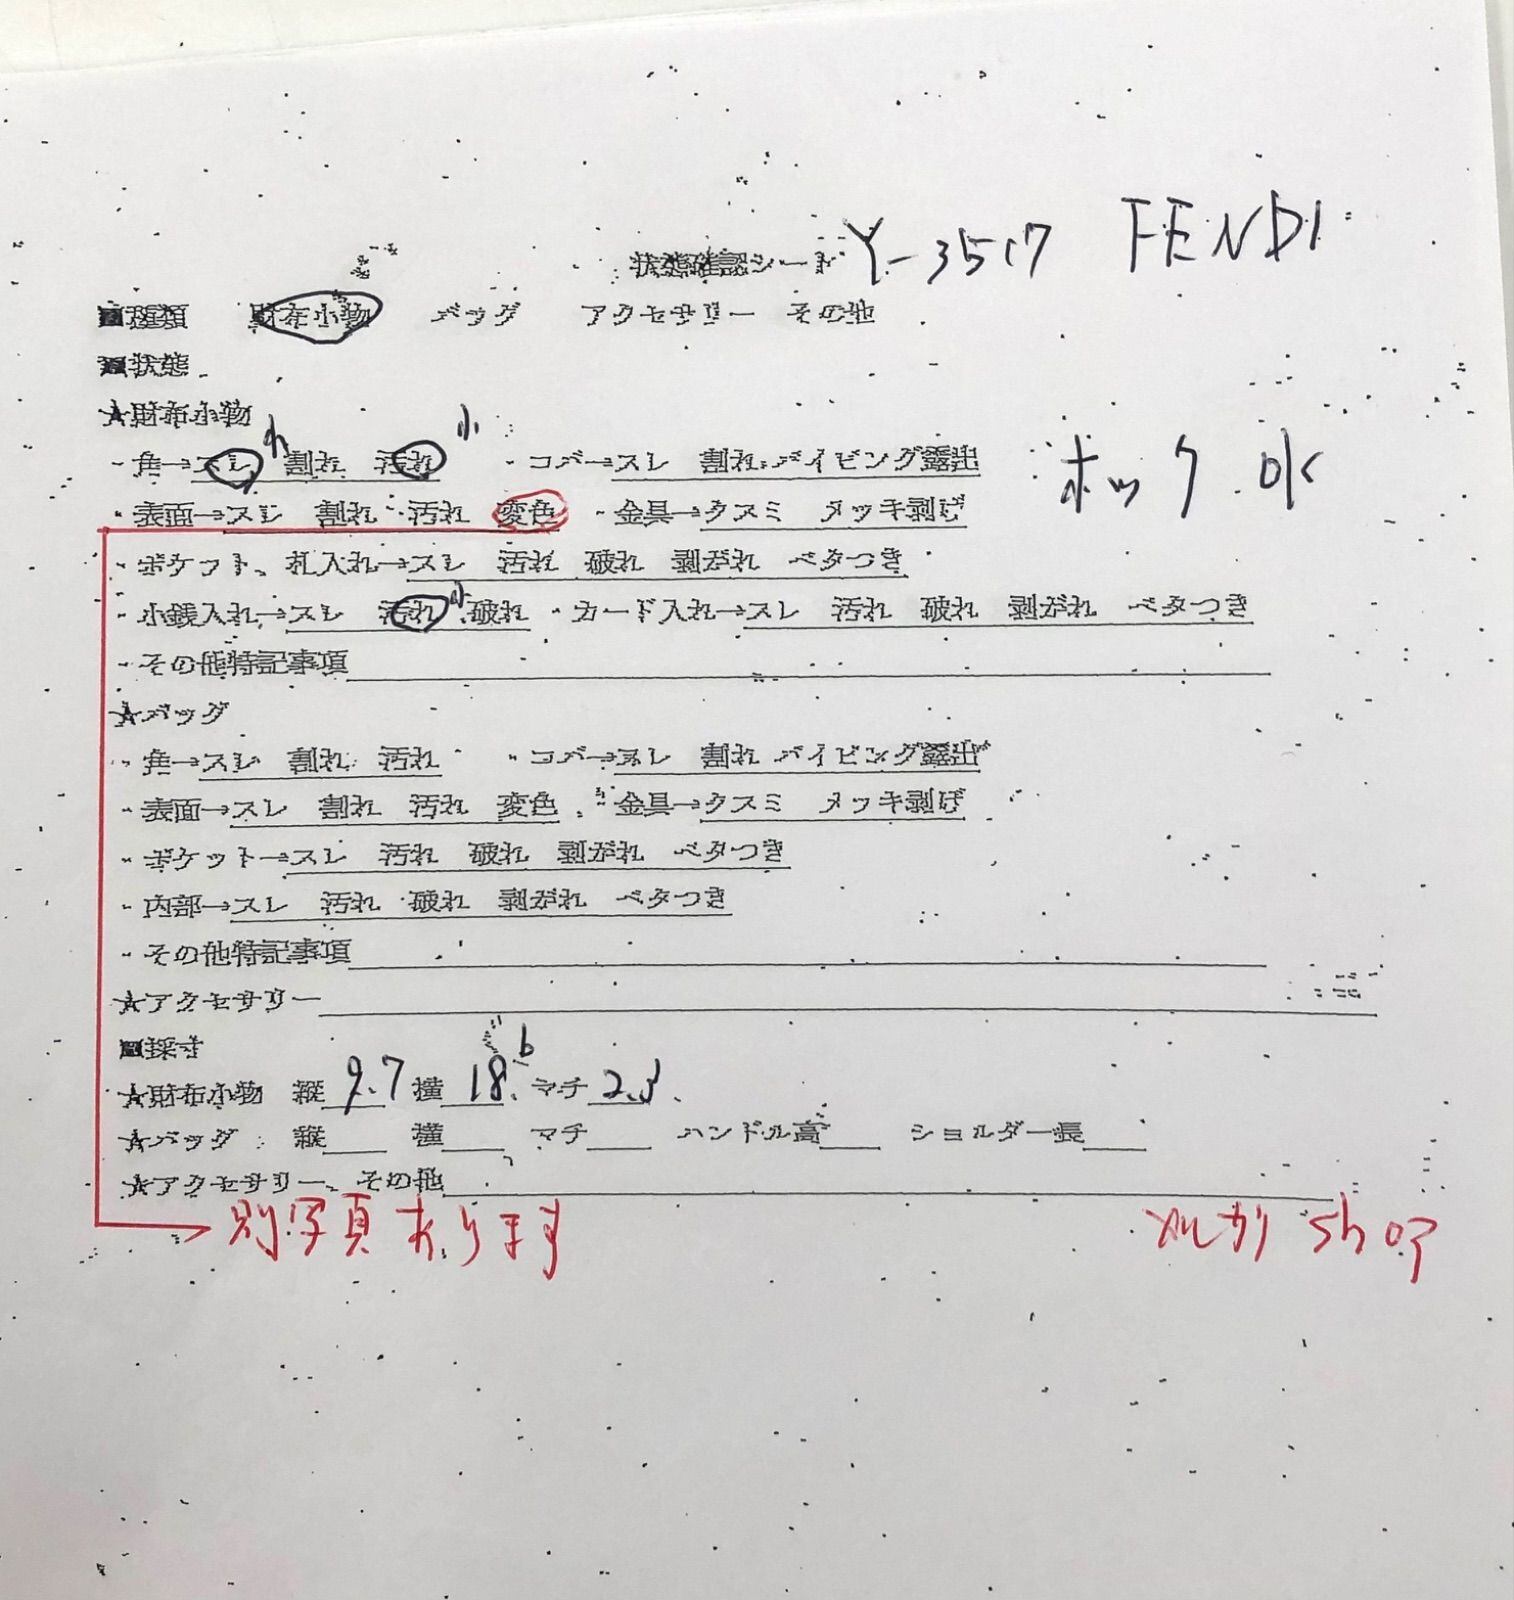 状態確認シート Y-3517 FENDI
■種類 財布小物 バッグ アクセサリー その他
■状態
★財布小物
・角→スレ 小 割れ 汚れ 小 ・コバ→スレ 割れ パイピング露出 ホック OK
・表面→スレ 割れ 汚れ 変色 ・金具→クスミ メッキ剥げ
・ポケット、札入れ→スレ 汚れ 破れ 剥がれ ベタつき
・小銭入れ→スレ 汚れ 小 破れ ・カード入れ→スレ 汚れ 破れ 剥がれ ベタつき
・その他特記事項
★バッグ
・角→スレ 割れ 汚れ ・コバ→スレ 割れ パイピング露出
・表面→スレ 割れ 汚れ 変色 ・金具→クスミ メッキ剥げ
・ポケット→スレ 汚れ 破れ 剥がれ ベタつき
・内部→スレ 汚れ 破れ 剥がれ ベタつき
・その他特記事項
★アクセサリー
■採寸
★財布小物 縦 9.7 横 18.6 マチ 2.3
★バッグ 縦 横 マチ ハンドル高 ショルダー長
★アクセサリー、その他
別写真あります shop